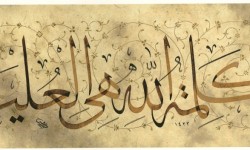 كلمة الله هي العلي